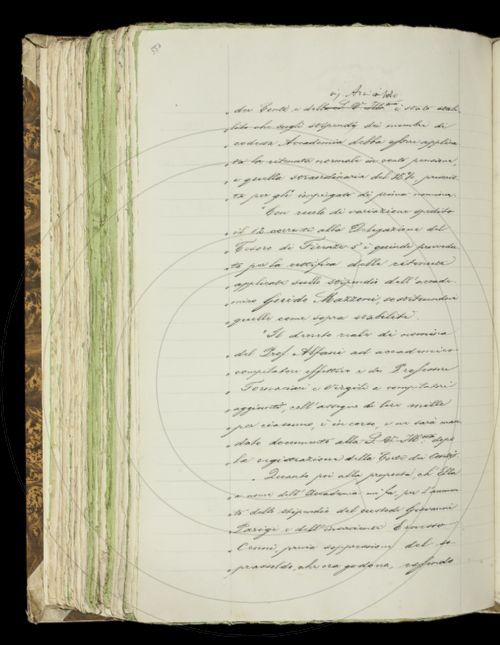 dei Conti e dalla S. V. Ill.ma è stato stabi-
lito che sugli stipendj dei membri di
codesta Accademia debba essere applica-
ta la ritenuta normale in conto pensione,
e quella straordinaria del
ta per gli impiegati di prima nomina.
Con reale di variazione spedito
il 12 corrente alla Delegazione del
Tesoro di Firenze s'è quindi provvedu-
to per la rettifica delle ritenute
applicate sullo stipendio dell'accade-
mico Guido Mazzoni, sostituendovi
quelle come sopra stabilite.
Il decreto reale di nomina
del Prof. Alfani ad accademico
compilatore effettivo e dei Professori
Fornaciari e Vergili a compilatori
aggiunti, coll'assegno di lire mille
per ciascuno, è in corso, e ne sarà man-
dato documento alla S. V. Ill.ma dopo
la registrazione della Corte dei Conti.
Quanto poi alla proposta che Ella
a nome dell'Accademia mi fa, per l'aumen-
to dello stipendio del custode Giovanni
Parigi e dell'inserviente Ernesto
Cenni, previa soppressione del so-
prassoldo che ora godono,